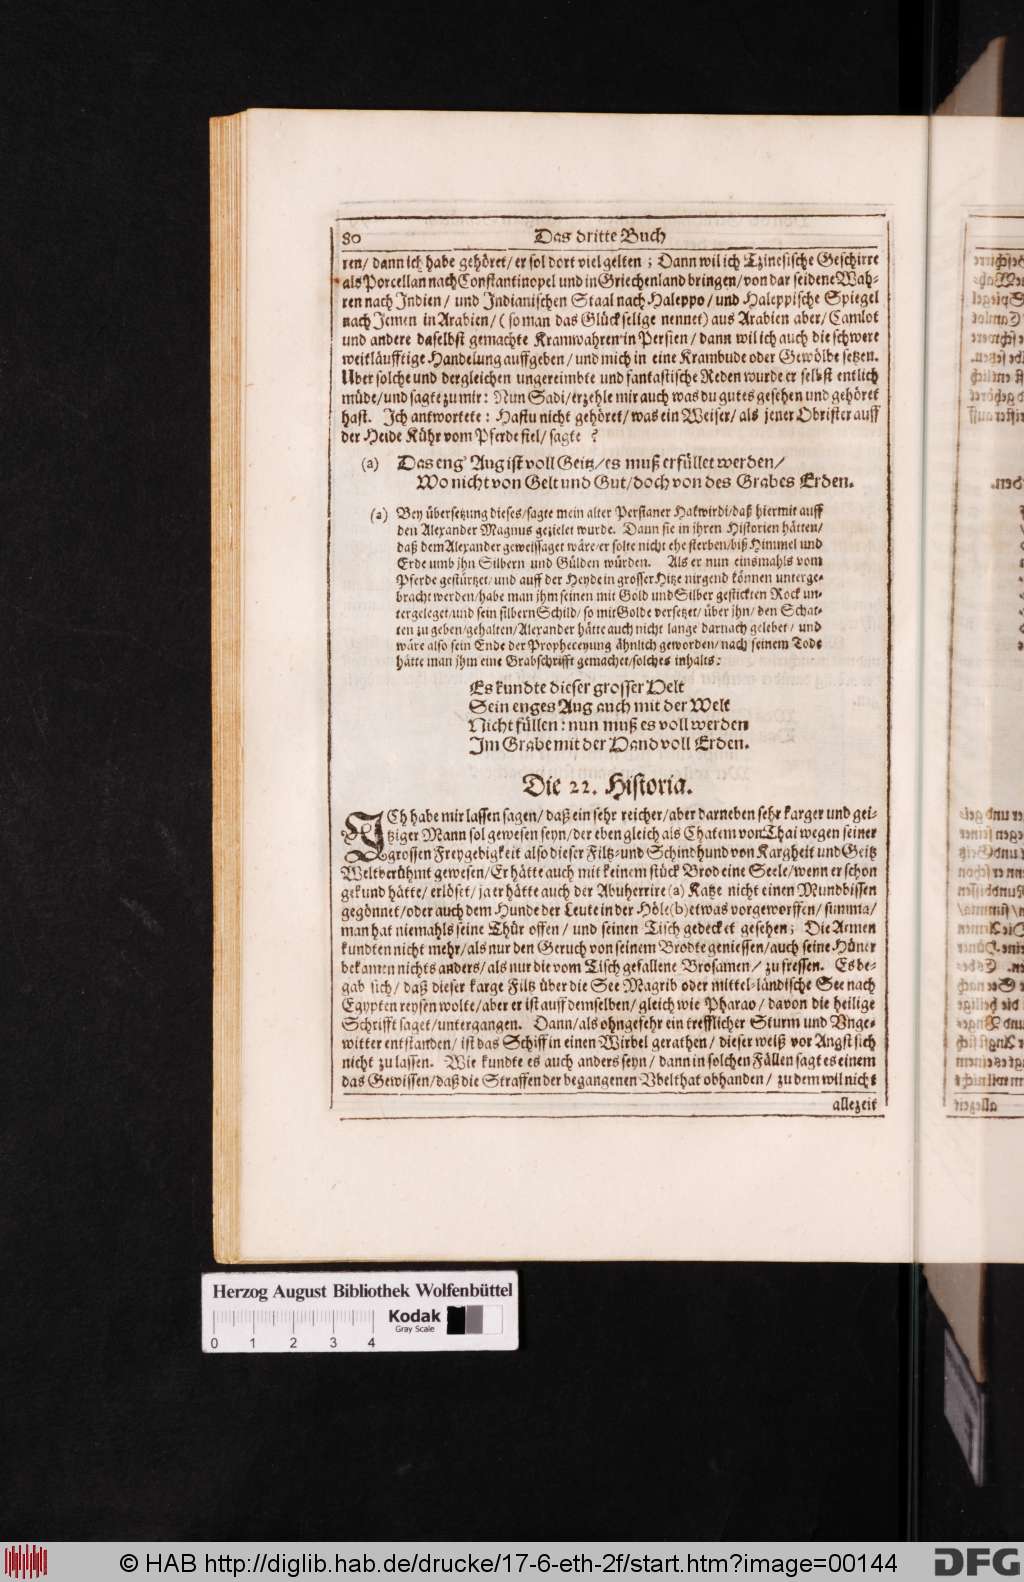 80 Das dritte Buch
ren/ dann ich habe gehöret/ er sol dort viel gelten; Dann wil ich Tzinesische Geschirre
als Porcellan nach Constantinopel und in Griechenland bringen/ von dar seidene Wah-
ren nach Indien/ und Indianischen Staal nach Haleppo/ und Haleppische Spiegel
nach Jemen in Arabien/ (so man das Glückselige nennet) aus Arabien aber/ Camlot
und andere daselbst gemachte Kramwahren in Persien/ dann wil ich auch die schwere
weitläufftige Handelung auffgeben/ und mich in eine Krambude oder Gewölbe setzen.
Uber solche und dergleichen ungereimbte und fantastische Reden wurde er selbst entlich
müde/ und sagte zu mir: Nun Sadi/ erzehle mir auch was du gutes gesehen und gehöret
hast. Ich antwortete: Hastu nicht gehöret/ was ein Weiser/ als jener Obrister auff
der Heide Kühr vom Pferde fiel/ sagte?
(a) Das eng' Aug ist voll Geitz/ es muß erfüllet werden/
Wo nicht von Gelt und Gut/ doch von des Grabes Erden.
(a) Bey übersetzung dieses/ sagte mein alter Persianer Hakwirdi/ daß hiermit auff
den Alexander Magnus gezielet wurde. Dann sie in ihren Historien hätten/
daß dem Alexander geweissaget wäre/ er solte nicht ehe sterben/ biß Himmel und
Erde umb jhn Silbern und Gülden würden. Als er nun einsmahls vom
Pferde gestürtzet/ und auff der Heyde in grosser Hitze nirgend können unterge-
bracht werden/ habe man jhm seinen mit Gold und Silber gestickten Rock un-
tergeleget/ und sein silbern Schild/ so mit Golde versetzet/ über jhn/ den Schat-
ten zu geben/ gehalten/ Alexander hätte auch nicht lange darnach gelebet/ und
wäre also sein Ende der Propheceyung ähnlich geworden/ nach seinem Tode
hätte man jhm eine Grabschrifft gemachet/ solches inhalts:
Es kundte dieser grosser Helt
Sein enges Aug auch mit der Welt
Nicht füllen: nun muß es voll werden
Im Grabe mit der Hand voll Erden.
Die 22. Historia.
ICh habe mir lassen sagen/ daß ein sehr reicher/ aber darneben sehr karger und gei-
tziger Mann sol gewesen seyn/ der eben gleich als Chatem von Thai wegen seiner
grossen Freygebigkeit also dieser Filtz- und Schindhund von Kargheit und Geitz
Weltberühmt gewesen/ Er hätte auch mit keinem stück Brod eine Seele/ wenn er schon
gekund hätte/ erlöset/ ja er hätte auch der Abuherrire (a) Katze nicht einen Mundbissen
gegönnet/ oder auch dem Hunde der Leute in der Höle (b) etwas vorgeworffen/ summa/
man hat niemahls seine Thür offen/ und seinen Tisch gedecket gesehen; Die Armen
kundten nicht mehr/ als nur den Geruch von seinem Brodte geniessen/ auch seine Hüner
bekamen nichts anders/ als nur die vom Tisch gefallene Brosamen/ zu fressen. Es be-
gab sich/ daß dieser karge Filtz über die See Magrib oder mittel-ländische See nach
Egypten reysen wolte/ aber er ist auff demselben/ gleich wie Pharao/ davon die heilige
Schrifft saget/ untergangen. Dann/ als ohngefehr ein trefflicher Sturm und Unge-
witter entstanden/ ist das Schiff in einen Wirbel gerathen/ dieser weiß vor Angst sich
nicht zu lassen. Wie kundte es auch anders seyn/ dann in solchen Fällen sagt es einem
das Gewissen/ daß die Straffen der begangenen Vbelthat obhanden/ zu dem wil nicht
allezeit
Herzog August Bibliothek Wolfenbüttel
Kodak
Gray Scale
0 1 2 3 4
© HAB http://diglib.hab.de/drucke/17-6-eth-2f/start.htm?image=00144
DFG